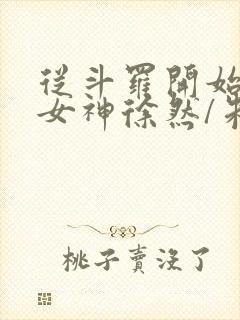 從斗羅開始
女神徐然/
桃子賣沒了